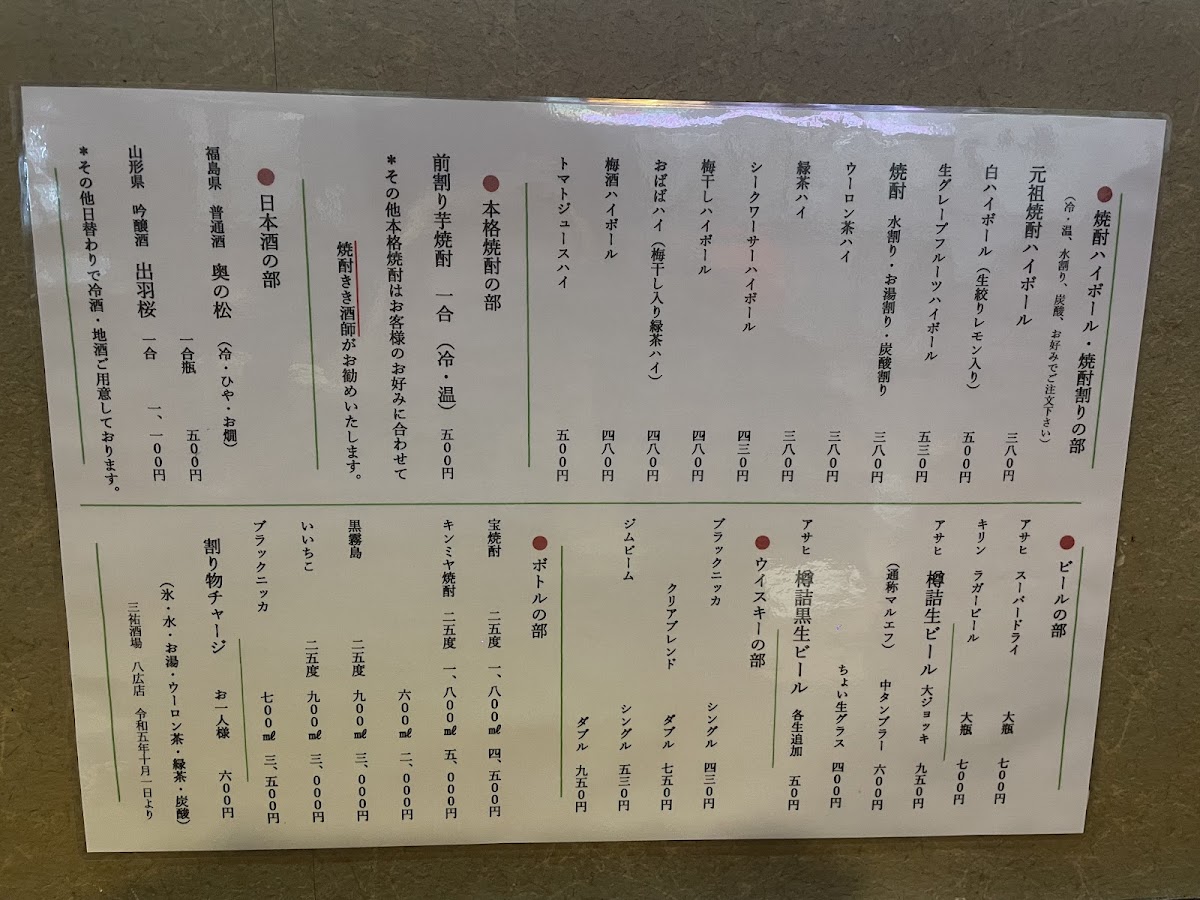 ●焼酎ハイボール・焼酎割りの部
（冷・温、水割り、炭酸、お好みでご注文下さい）
元祖焼酎ハイボール 三八〇円
白ハイボール（生絞りレモン入り） 五〇〇円
生グレープフルーツハイボール 五三〇円
焼酎 水割り・お湯割り・炭酸割り 三八〇円
ウーロン茶ハイ 三八〇円
緑茶ハイ 三八〇円
シークワーサーハイボール 四三〇円
梅干しハイボール 四八〇円
おばばハイ（梅干し入り緑茶ハイ） 四八〇円
梅酒ハイボール 四八〇円
トマトジュースハイ 五〇〇円
●本格焼酎の部
前割り芋焼酎 一合（冷・温） 五〇〇円
＊その他本格焼酎はお客様のお好みに合わせて
焼酎きき酒師がお勧めいたします。
●日本酒の部
福島県 普通酒 奥の松（冷・ひや・お燗）
一合瓶 五〇〇円
山形県 吟醸酒 出羽桜 一合 一、一〇〇円
＊その他日替わりで冷酒・地酒ご用意しております。
●ビールの部
アサヒ スーパードライ 大瓶 七〇〇円
キリン ラガービール 大瓶 七〇〇円
アサヒ 樽詰生ビール 大ジョッキ 九五〇円
（通称マルエフ） 中タンブラー 六〇〇円
ちょい生グラス 四〇〇円
アサヒ 樽詰黒生ビール 各生追加 五〇円
●ウイスキーの部
ブラックニッカ シングル 四三〇円
クリアブレンド ダブル 七五〇円
ジムビーム シングル 五三〇円
ダブル 九五〇円
●ボトルの部
宝焼酎 二五度 一、八〇〇㎖ 四、五〇〇円
キンミヤ焼酎 二五度 一、八〇〇㎖ 五、〇〇〇円
六〇〇㎖ 二、〇〇〇円
黒霧島 二五度 九〇〇㎖ 三、〇〇〇円
いいちこ 二五度 九〇〇㎖ 三、〇〇〇円
ブラックニッカ 七〇〇㎖ 三、五〇〇円
割り物チャージ お一人様 六〇〇円
（氷・水・お湯・ウーロン茶・緑茶・炭酸）
三祐酒場 八広店 令和五年十月一日より